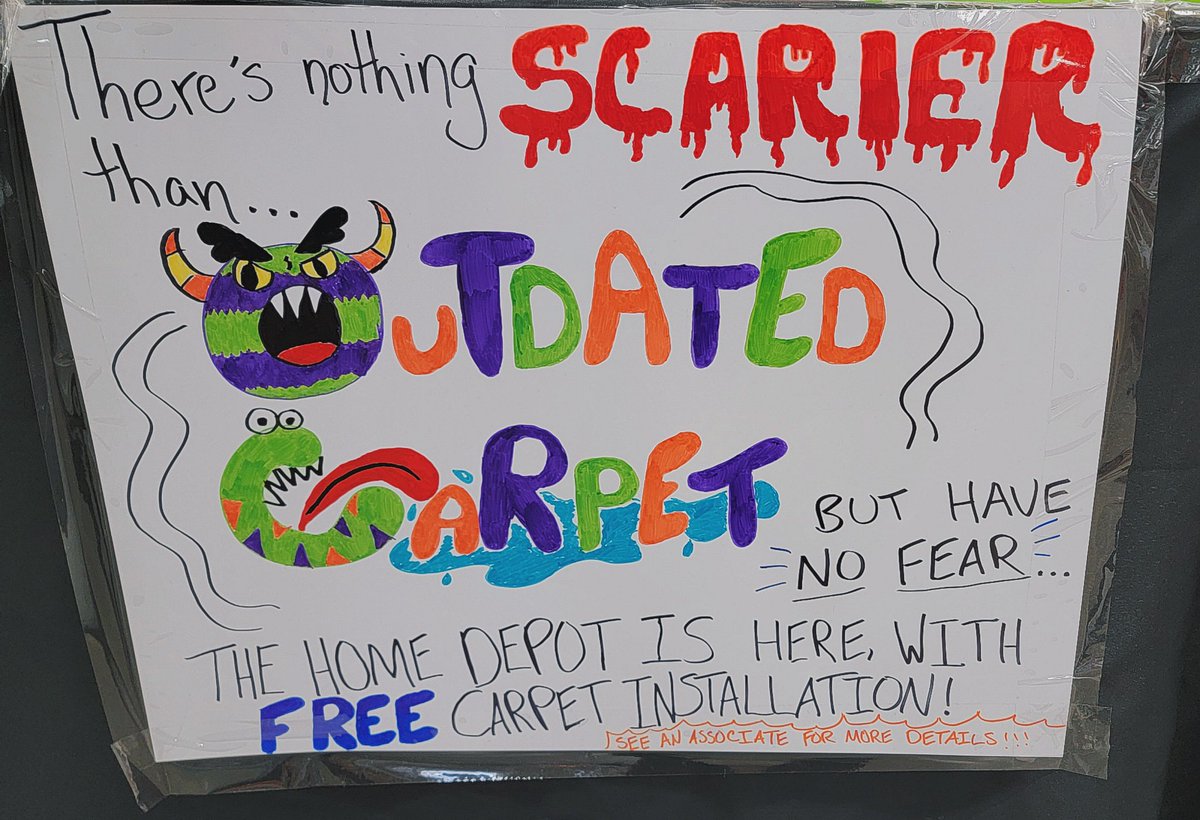 There's nothing SCARIER
than...
OuTDATED
CARPET
BUT HAVE
NO FEAR...
THE HOME DEPOT IS HERE, WITH
FREE CARPET INSTALLATION!
SEE AN ASSOCIATE FOR MORE DETAILS!!!